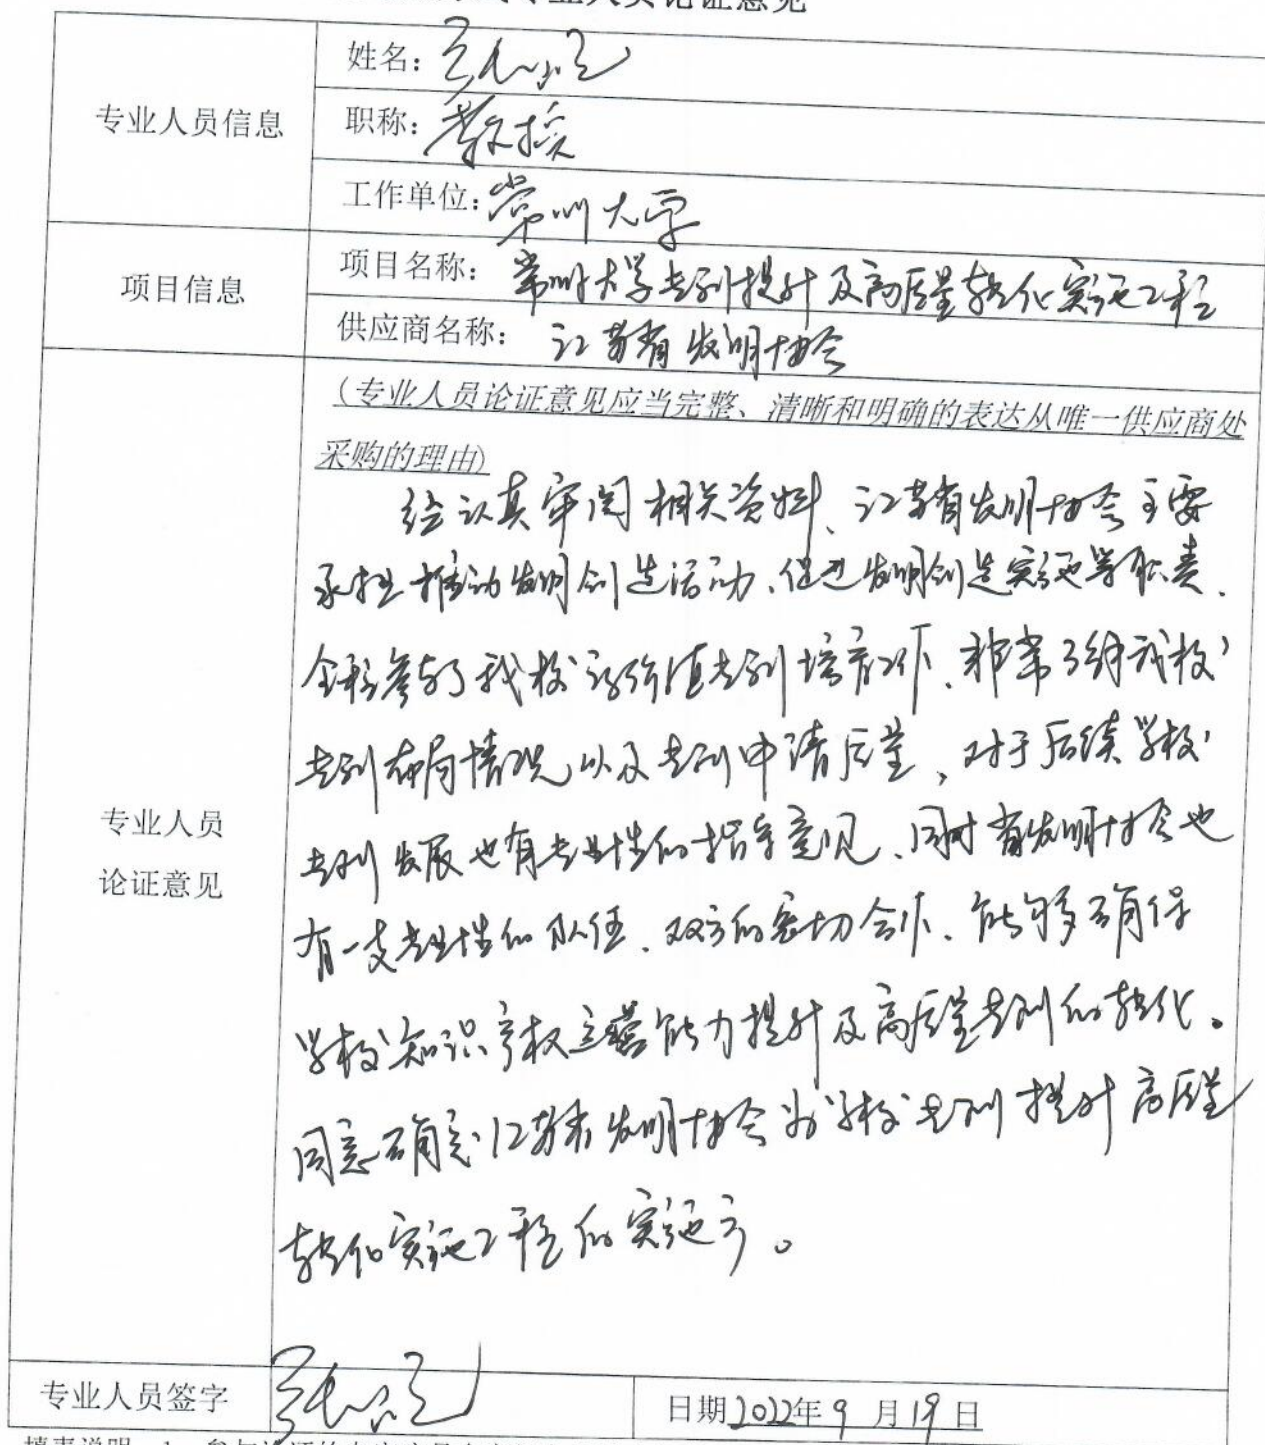 专业人员论证意见
专业人员信息
姓名:
职称: 教授
工作单位: 常州大学
项目信息
项目名称: 常州大学专利提升及高质量转化实施工程
供应商名称: 江苏省发明协会
专业人员
论证意见
(专业人员论证意见应当完整、清晰和明确的表达从唯一供应商处
采购的理由)
经认真审阅相关资料、江苏省发明协会主要
承担推动发明创造活动、促进发明创造实施等职责.
全程参与了我校高价值专利培育工作、非常了解我校
专利布局情况以及专利申请质量,对于后续学校
专利发展也有专业性的指导意见、同时省发明协会也
有一支专业性的队伍、双方的密切合作、能够确保
学校知识产权运营能力提升及高质量专利的转化。
同意确定江苏省发明协会为学校专利提升高质量
转化实施工程的实施方。
专业人员签字
日期2022年9月19日